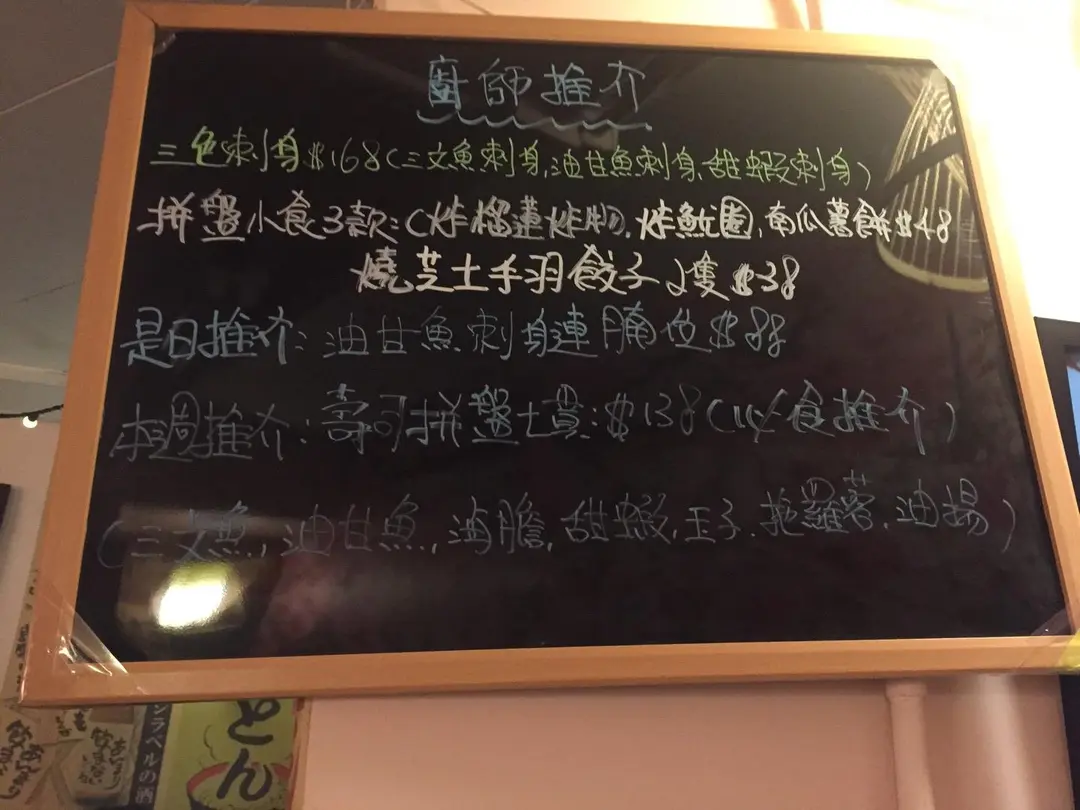 廚師推介
三色刺身$168(三文魚刺身,油甘魚刺身,甜蝦刺身)
拼盤小食3款:(炸榴蓮炸物,炸魷圈,南瓜薯餅$48
燒芝士手羽餃子2隻$38
是日推介:油甘魚刺身連腩位$88
本週推介:壽司拼盤七貫:$138(食推介)
(三文魚,油甘魚,海膽,甜蝦,玉子,拖羅蓉,油揚)
どん
ンラベルの酒